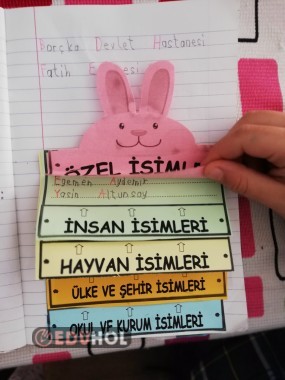 Borçka Devlet Hastanesi
Fatih
ÖZEL İSİMLE
Egemen Aydemir
Yasin Altunsay
İNSAN İSİMLERİ
HAYVAN İSİMLERİ
ÜLKE VE ŞEHİR İSİMLERİ
OKUL VE KURUM İSİMLERİ
EDUHOL